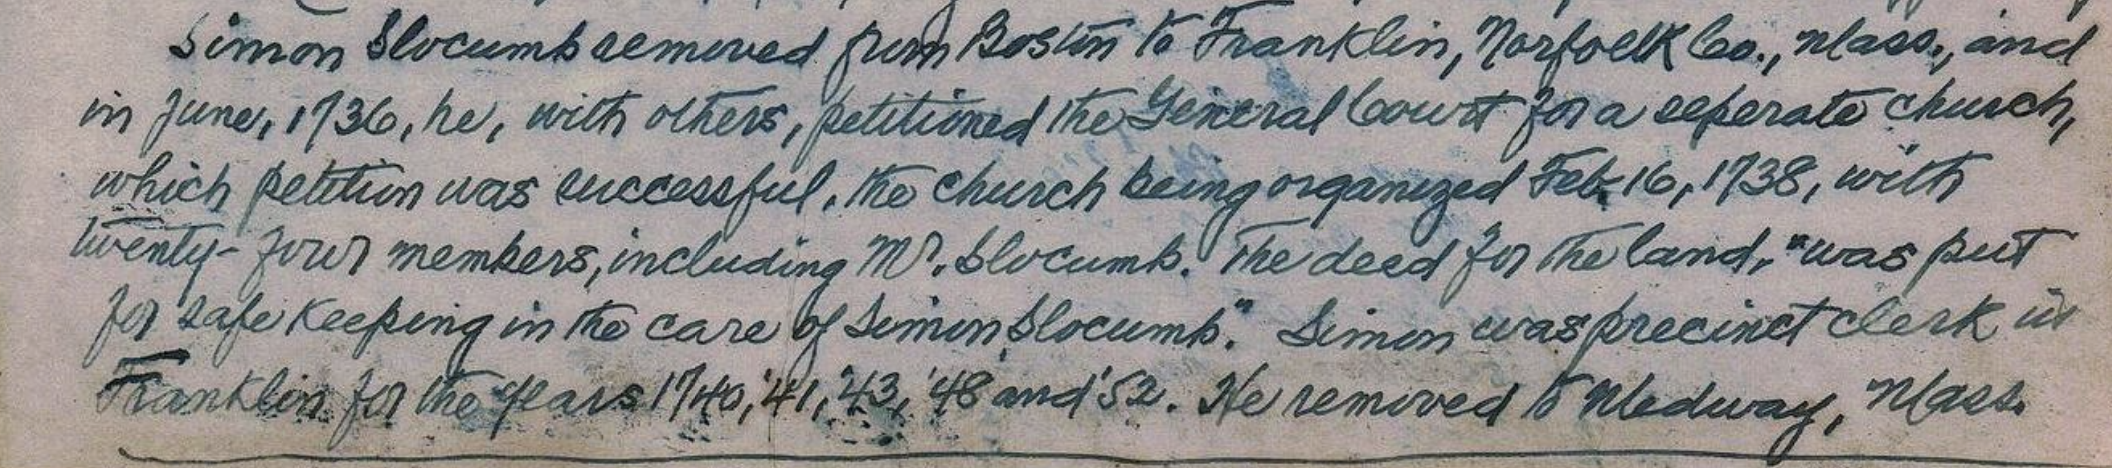 Simon Slocumb removed from Boston to Franklin, Norfolk Co., Mass., and
in June, 1736, he, with others, petitioned the General Court for a seperate church,
which petition was successful, the church being organized Feb. 16, 1738, with
twenty-four members, including Mr. Slocumb. The deed for the land, "was put
for safe keeping in the care of Simon Slocumb." Simon was precinct clerk in
Franklin for the years 1740, '41, '43, '48 and '52. He removed to Medway, Mass.